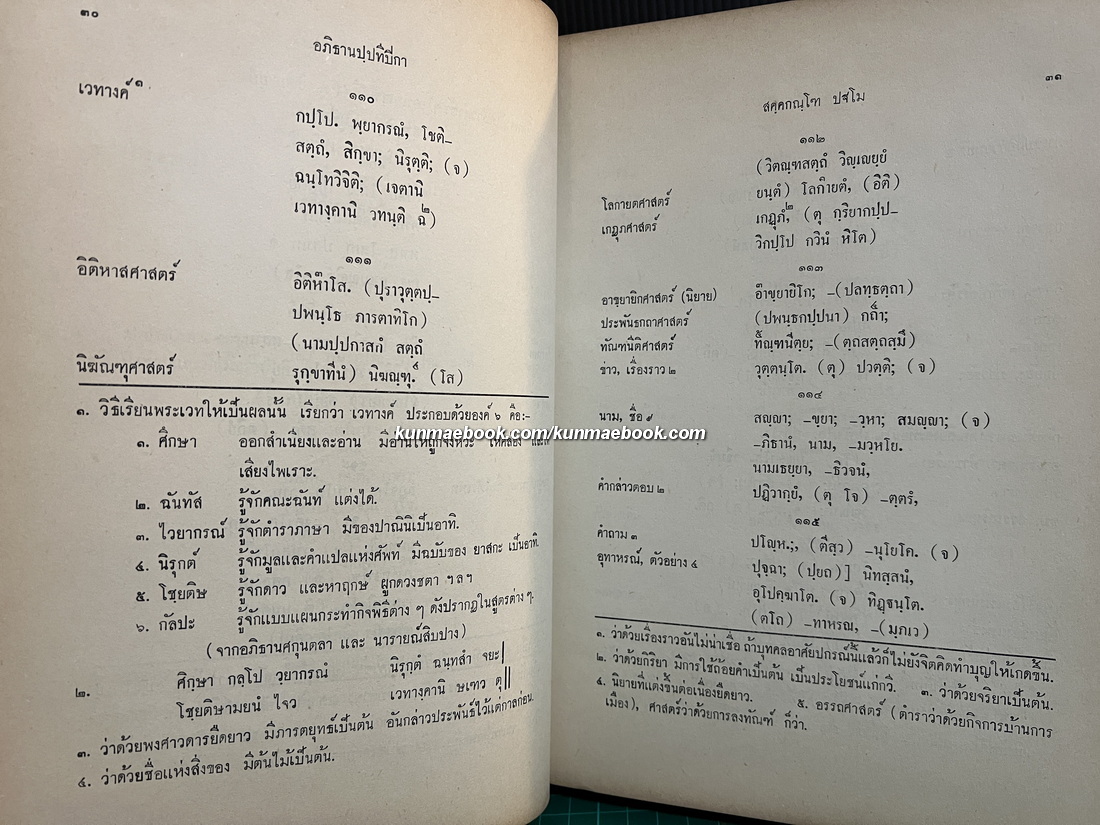 ๓๐
อภิธานปฺปทีปิกา
เวทางค์ ๑
๑๑๐
กปฺโป. พฺยากรณํ, โชติ–
สตฺถํ, สิกฺขา; นิรุตฺติ; (จ)
ฉนฺโทวิจิติ; (เจตานิ
เวทางฺคานิ วทนฺติ ฉ๒)
๑๑๑
อิติหาสศาสตร์
อิติหาโส. (ปุราวุตฺตปฺ–
ปพนฺโธ ภารตาทิโก)
(นามปฺปกาสกํ สตฺถํ
นิฆัณฑุศาสตร์
รุกฺขาทีนํ) นิฆณฺฑุ. (โส)
๑. วิธีเรียนพระเวทให้เป็นผลนั้น เรียกว่า เวทางค์ ประกอบด้วยองค์ ๖ คือ:-
๑. ศึกษา ออกสำเนียงและอ่าน มีอ่านให้ถูกจังหวะ ให้คล่อง
เสียงไพเราะ.
๒. ฉันทัส รู้จักคณะฉันท์ แต่งได้.
๓. ไวยากรณ์ รู้จักตำราภาษา มีของปาณินิเป็นอาทิ.
๔. นิรุกต์ รู้จักมูลและคำแปลแห่งศัพท์ มีฉบับของ ยาสกะ เป็นอาทิ.
๕. โชฺยติษ รู้จักดาว และหาฤกษ์ ผูกดวงชตา ฯลฯ
๖. กัลปะ รู้จักแบบแผนกระทำกิจพิธีต่าง ๆ ดังปรากฏในสูตรต่าง ๆ.
(จากอภิธานศกุนตลา และ นารายณ์สิบปาง)
๒. ศิกฺษา กลฺโป วฺยากรณํ นิรุกฺตํ ฉนฺทสำ จยะ|
โชฺยติษามยนํ ไจว เวทางฺคานิ ษเฑว ตุ||
๓. ว่าด้วยพงศาวดารยืดยาว มีภารตยุทธ์เป็นต้น อันกล่าวประพันธ์ไว้แต่กาลก่อน.
๔. ว่าด้วยชื่อแห่งสิ่งของ มีต้นไม้เป็นต้น.
๓๑
สคฺคกณฺโฑ ปฐโม
๑๑๒
(วิตณฺฑสตฺถํ วิญฺเญยฺยํ
โลกายตศาสตร์
ยนฺตํ) โลกายตํ, (อิติ)
เกฏุภศาสตร์
เกฏุภํ,๒ (ตุ กฺริยากปฺป–
วิกปฺโป กวินํ หิโต)
๑๑๓
อาขฺยายิกศาสตร์ (นิยาย)
อาขฺยายิโก; –(ปลทฺธตฺถา)
ประพันธกถาศาสตร์
(ปพนฺธกปฺปนา) กถา;
ทัณฑนีติศาสตร์
ทณฺฑนีตฺยฺ; –(ตฺถสตฺถสฺมึ)
ข่าว, เรื่องราว ๒
วุตฺตนฺโต. (ตุ) ปวตฺติ; (จ)
๑๑๔
นาม, ชื่อ ๙
สญฺญา; –ขฺยา; –วฺหา; สมญฺญา; (จ)
–ภิธานํ, นาม, –มวฺหโย.
นามเธยฺยา, –ธิวจนํ,
คำกล่าวตอบ ๒
ปฏิวากฺยํ, (ตุ โจ) –ตฺตรํ,
๑๑๕
คำถาม ๓
ปโญฺห.;, (ตีสฺว) –นุโยโค. (จ)
อุทาหรณ์, ตัวอย่าง ๔
ปุจฺฉา; (ปฺยถ)] นิทสฺสนํ,
อุโปคฺฆาโต. (จ) ทิฏฺฐนฺโต.
(ตโถ) –ทาหรณ, –(มฺภเว)
๑. ว่าด้วยเรื่องราวอันไม่น่าเชื่อ ถ้าบุคคลอาศัยปกรณ์นี้แล้วก็ไม่ยังจิตคิดทำบุญให้เกดขึ้น.
๒. ว่าด้วยกิริยา มีการใช้ถ้อยคำเป็นต้น เป็นประโยชน์แก่กวี. ๓. ว่าด้วยจริยาเป็นต้น.
๔. นิยายที่แต่งขึ้นต่อเนื่องยืดยาว. ๕. อรรถศาสตร์ (ตำราว่าด้วยกิจการบ้านการ
เมือง), ศาสตร์ว่าด้วยการลงทัณฑ์ ก็ว่า.
kunmaebook.com/kunmaebook.com